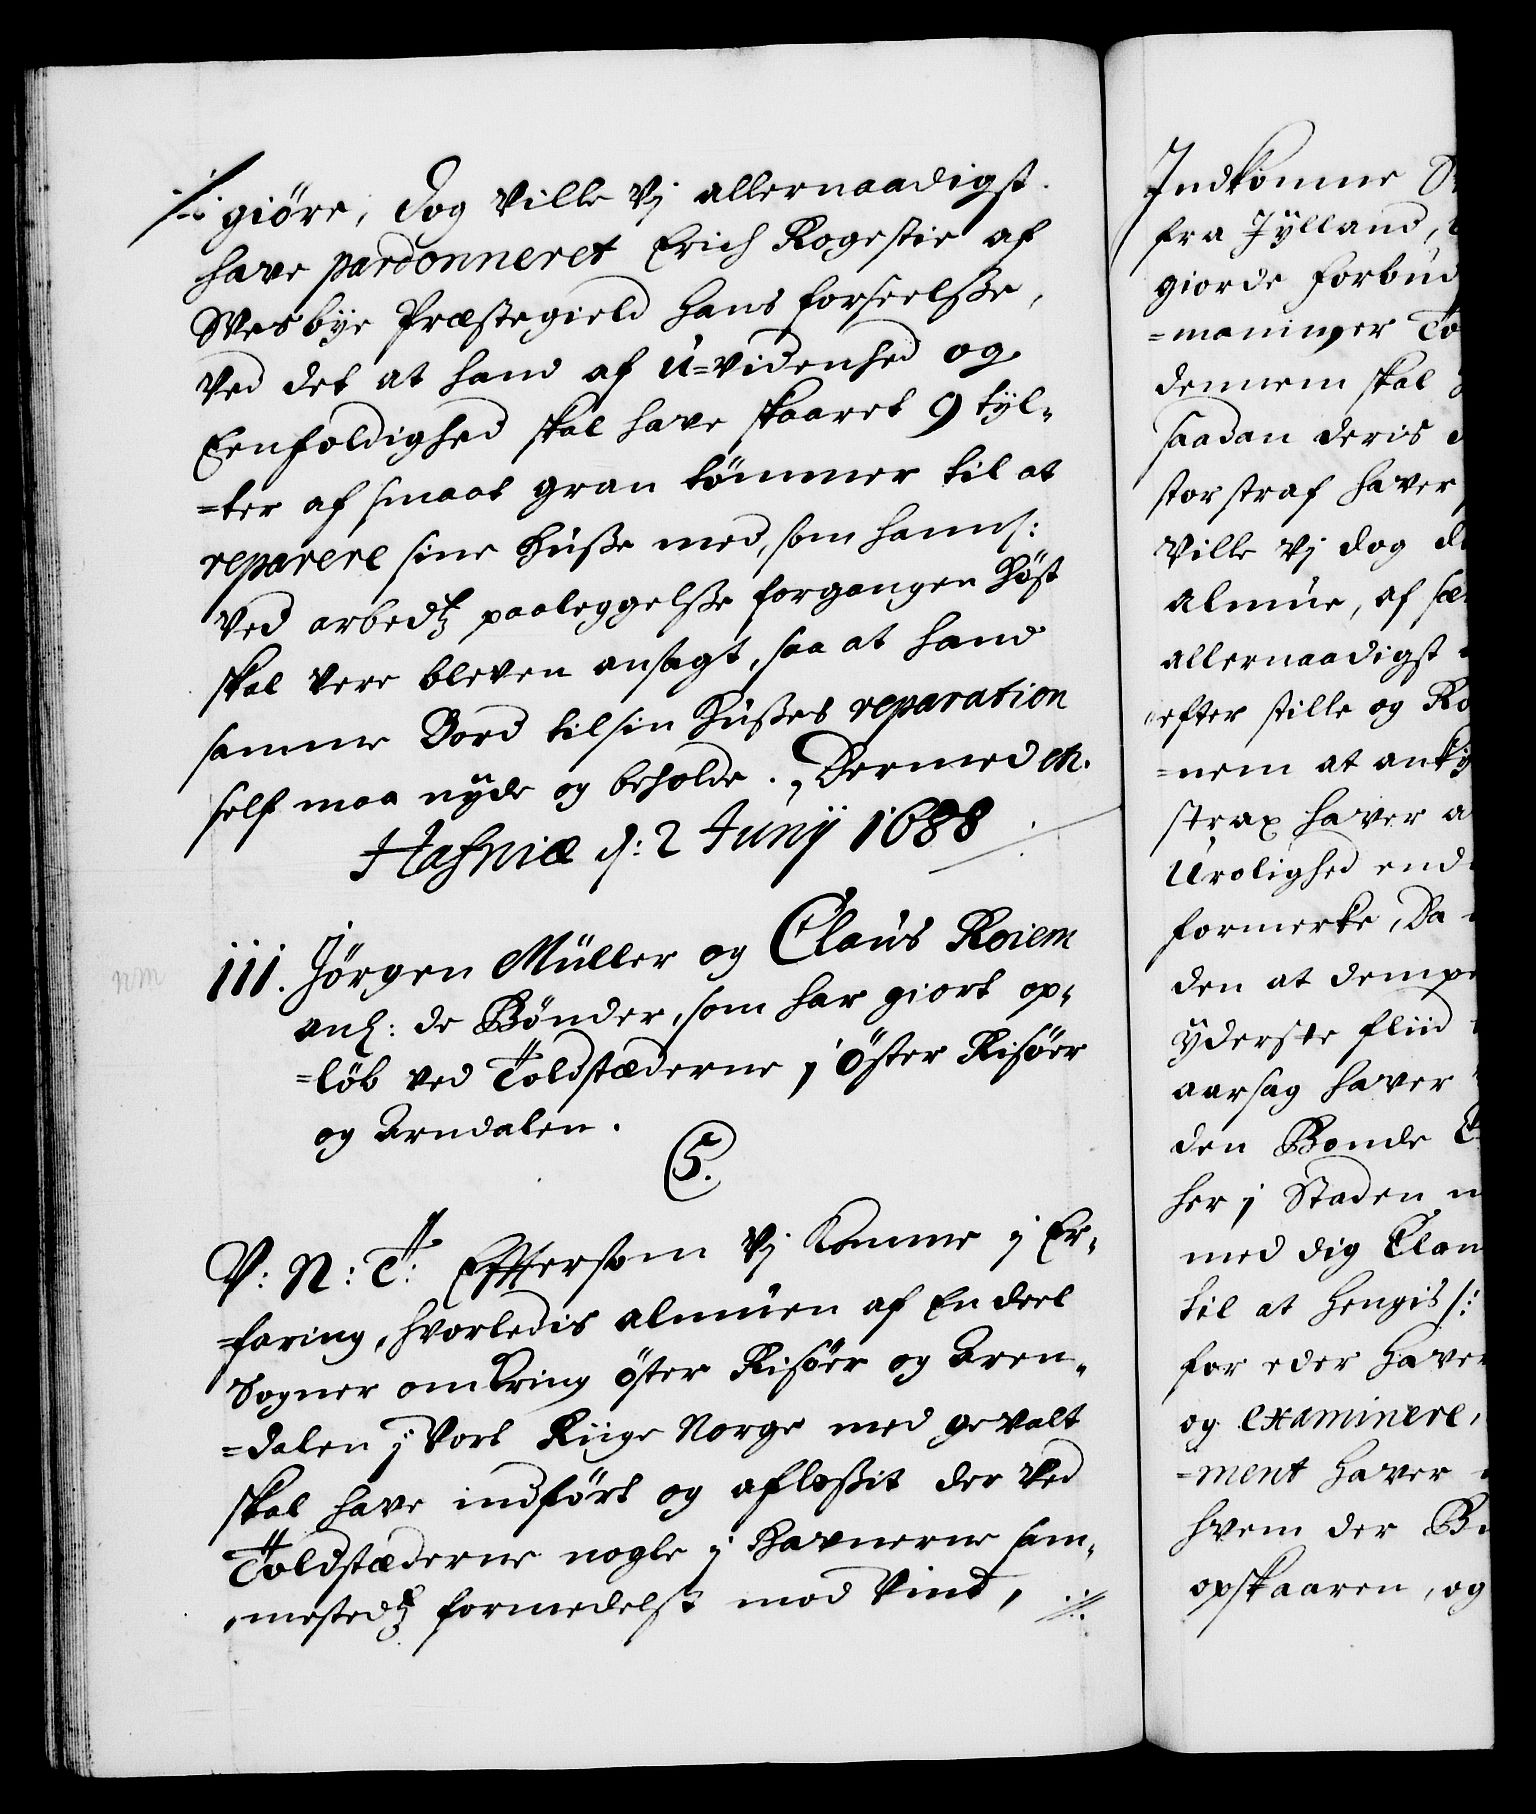 giöre, dog ville Vj allernaadigst
have pardonneret Erich Rogstie af
Wesbÿe Præstegield hans forseelsse,
Ved det at hand af U=videnhed og
Eenfoldighed skal have skaaret 9 tÿl-
=ter af smaat gran tömmer til at
reparere sine Huße med, som hannß:
ved arbedtz paaleggelße forgangen Höst
skal vere bleven ansagt, saa at hand
samme Bord til sin Hußes reparation
self maa nÿde og beholde. Dermed etc.
Hafniæ d: 2 Junij 1688
111. Jörgen Müller og Claus Roiem
anl: de Bönder, som har giort op-
=löb ved Toldstæderne j öster Risöer
og Arndalen.
5.
V: N: T: Efftersom Vj komme j Er-
=faring, hvorledis almuen af En deel
Sogner omkring öster Risöer og Aren-
=dalen j Vort Riige Norge med gevalt
skal have indfört og afleßit der ved
Toldstæderne nogle j Havnerne sam-
mestedtz formedelst mod Vind,
Indkomne
fra Jÿlland,
giorde forbud
=maninger
dennem skal
saadan deris
stor straf haver
Ville Vj dog
almue, af
allernaadigst
efter stille og
=nem at
strax haver
Urolighed
formerke, Da
den at
ÿderste fliid
aarsag haver
den Bonde
her j Staden
med dig
til at Hengis
for eder haver
og examinere,
=ment haver
hvem der
opskaaren, og